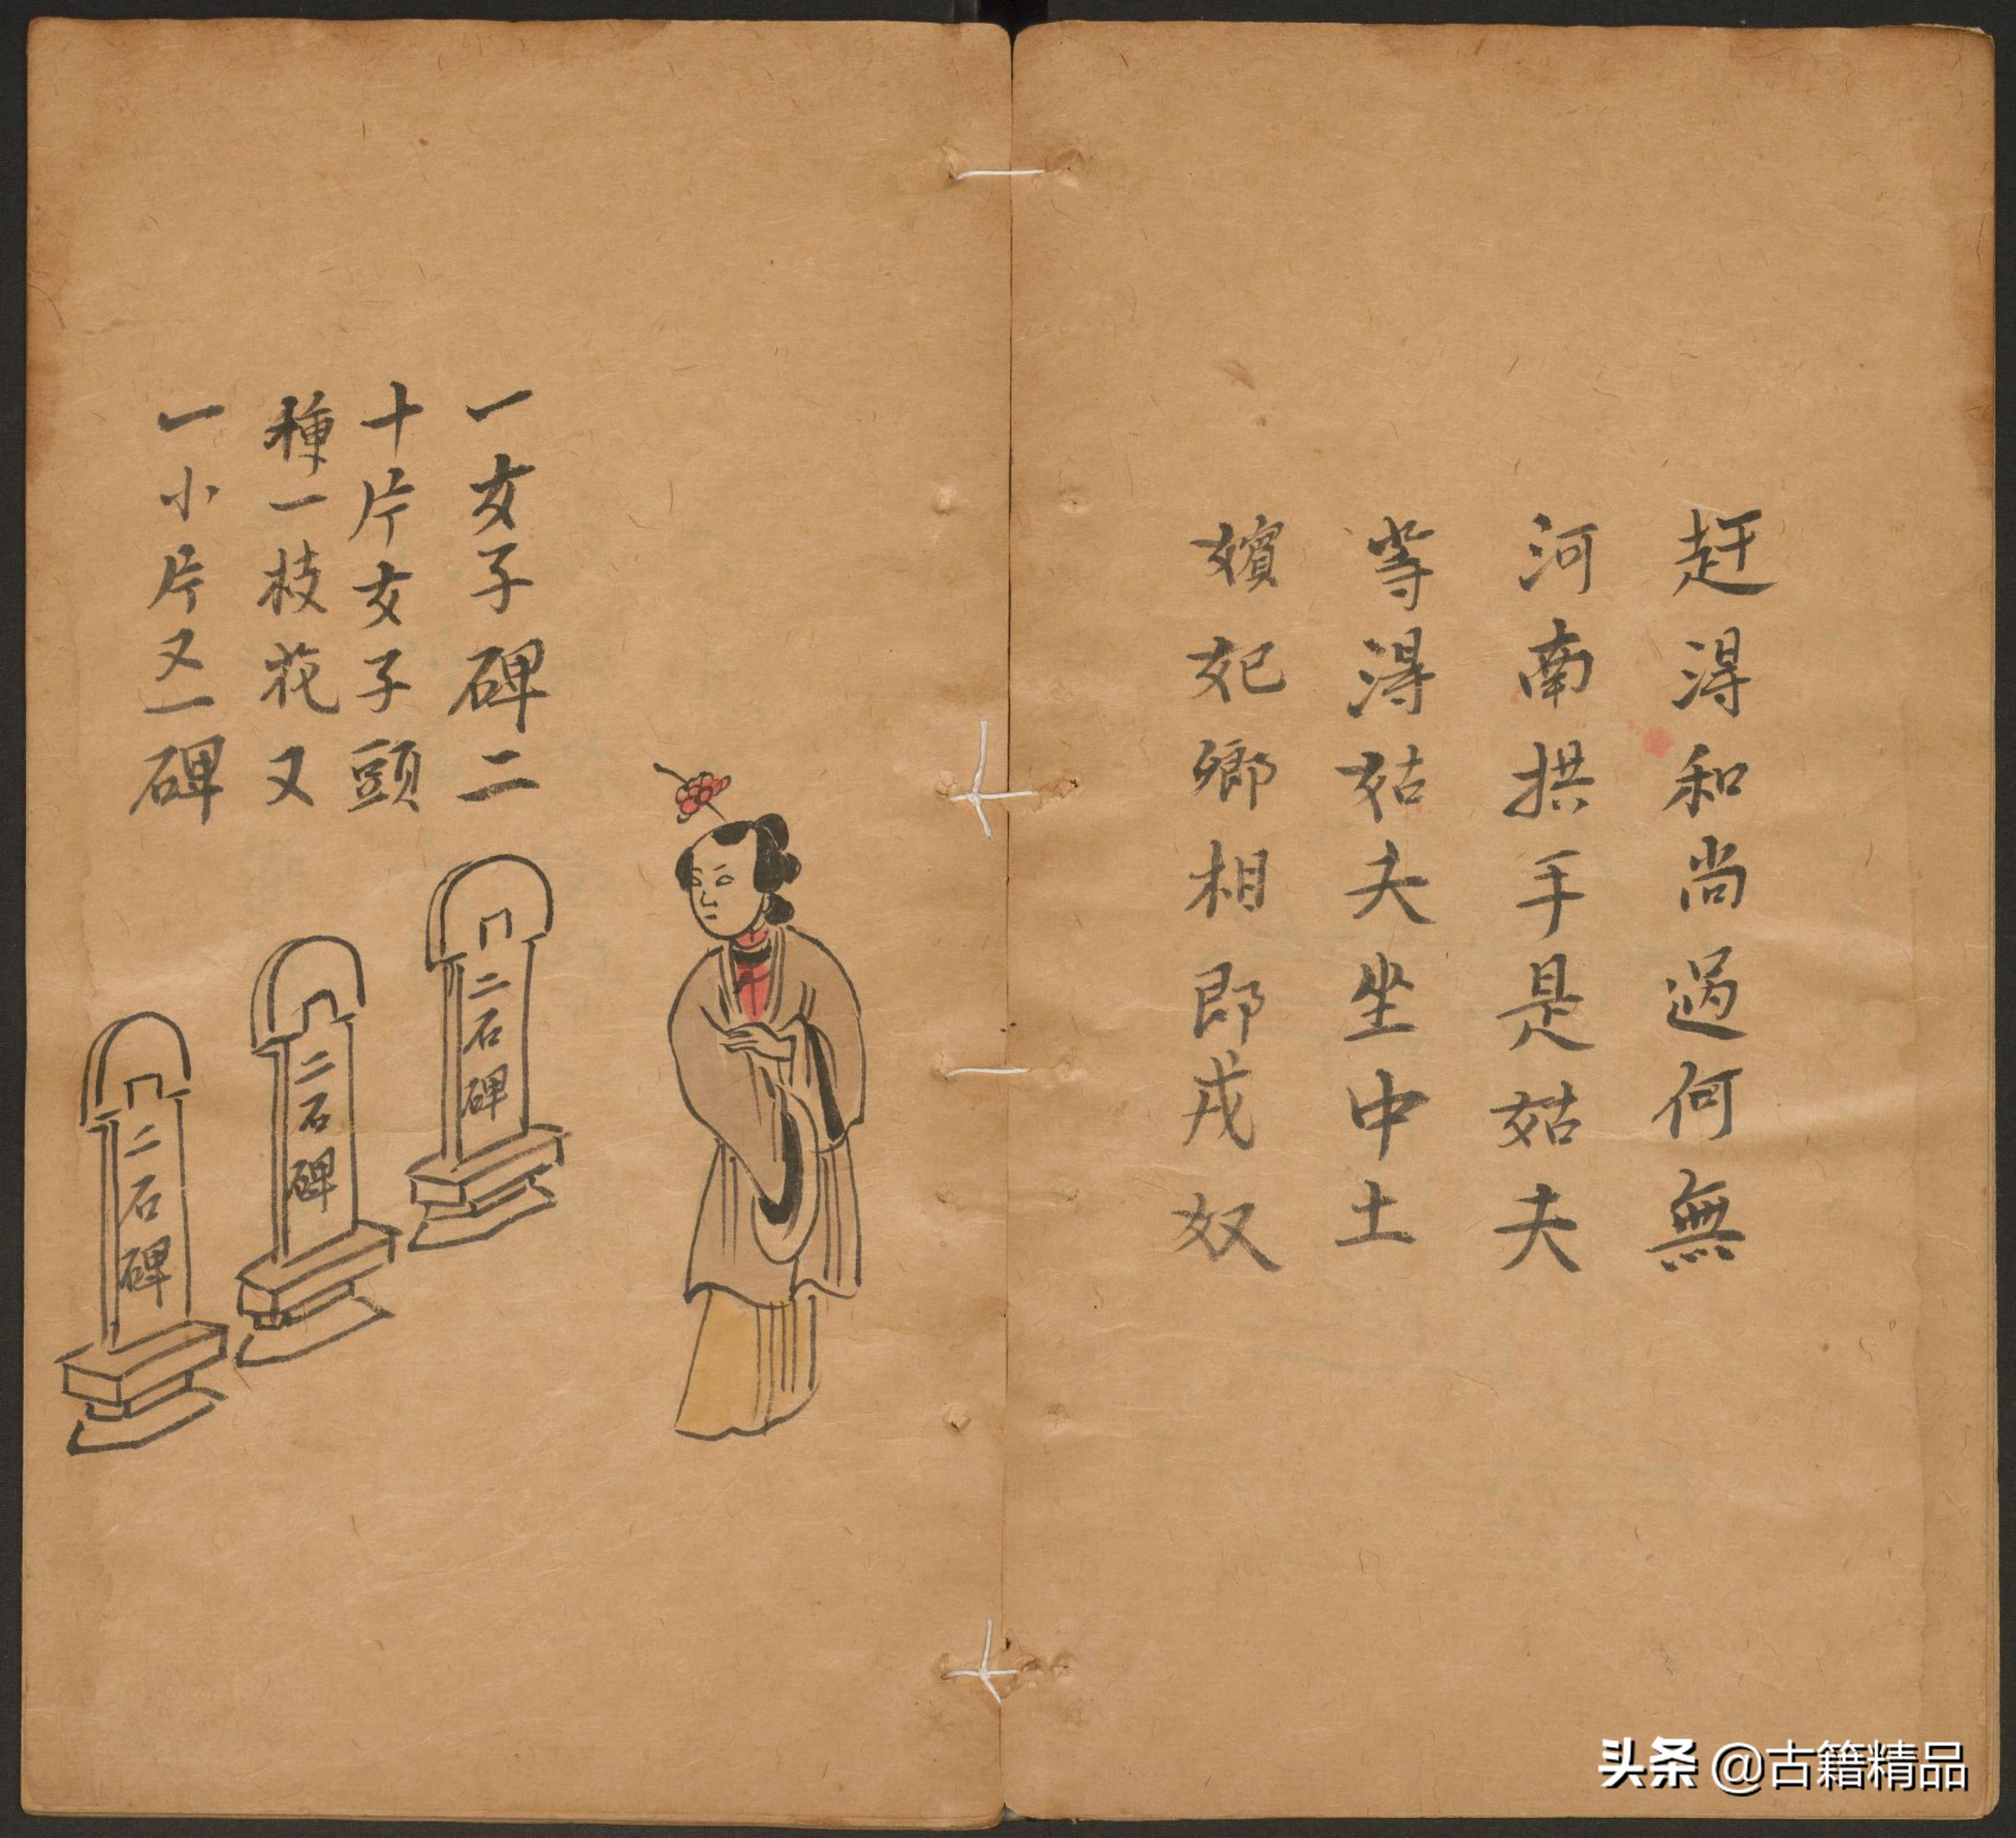 赶得和尚過何無
河南拱手是姑夫
等得姑夫坐中土
嬪妃鄉相即戎奴
一女子碑二
十片女子頭
種一枝花又
一小片又一碑
二石碑
二石碑
二石碑
头条 @古籍精品